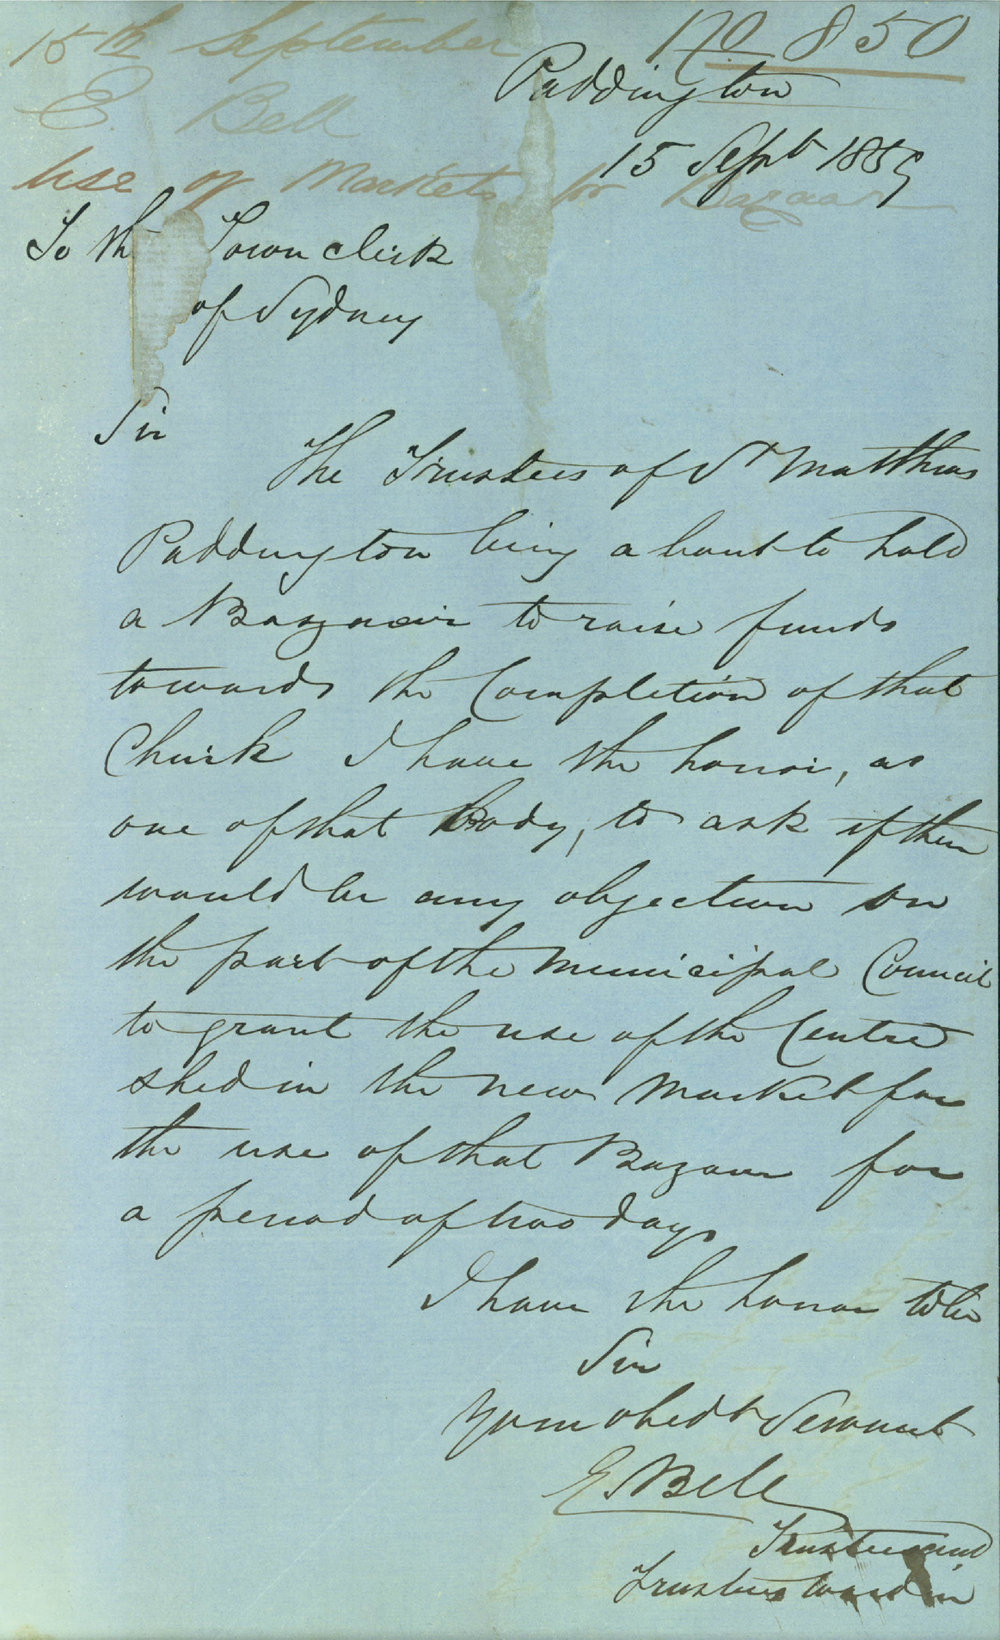 15th September No 850
E. Bell
Use of Markets for Bazaar
Paddington
15 Sept 1859
To the Town Clerk
of Sydney
Sir
The Trustees of St Matthias
Paddington being about to hold
a Bazaar to raise funds
towards the Completion of that
Church I have the honor, as
one of that body, to ask if there
would be any objection on
the part of the Municipal Council
to grant the use of the Centre
shed in the new Market for
the use of that Bazaar for
a period of two days
I have the honor to be
Sir
Your obedt Servant
E Bell
Trustee and
Trustees Warden